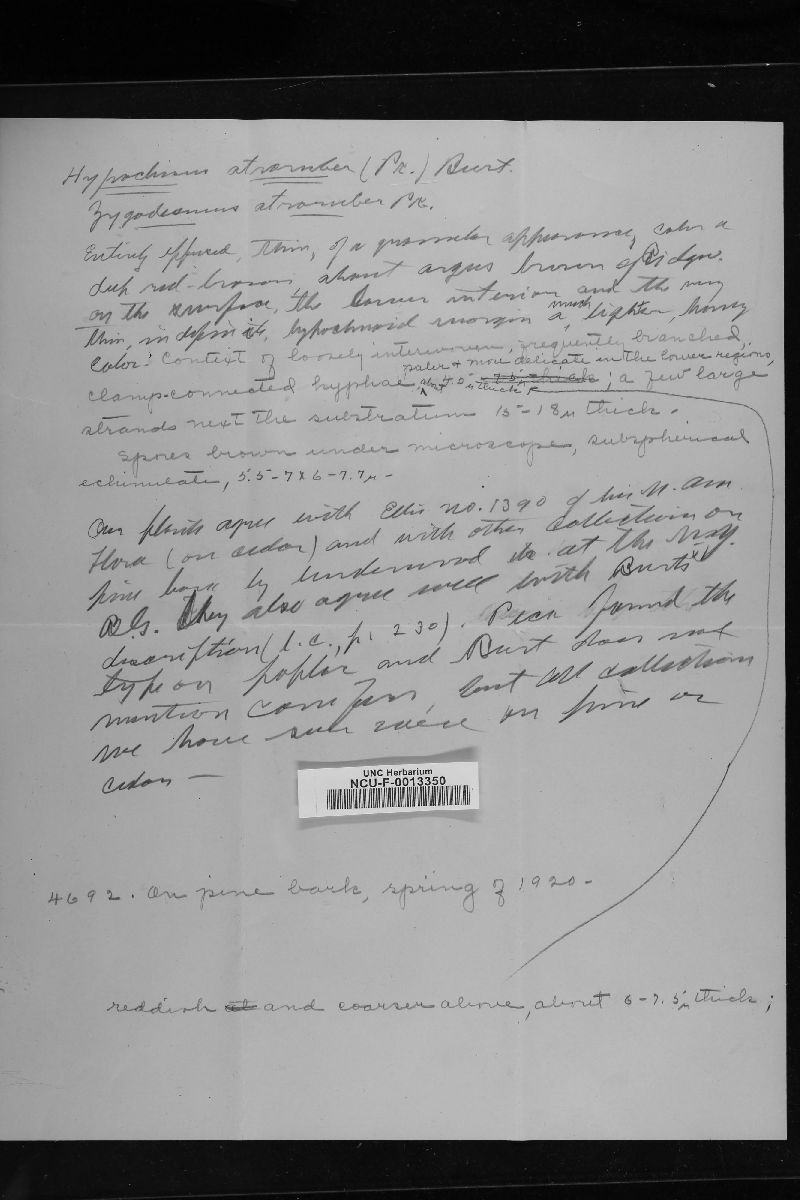 Hypochnus atroruber (Pk.) Burt.
Zygodesmus atroruber Pk.
Entirely effused, thin, of a granular appearance, color a
deep red-brown, about argus brown of Ridgw.
on the surface, the lower interior and the very
thin, indefinite, hypochnoid margin a much lighter, honey
color. Context of loosely interwoven, frequently branched,
paler & more delicate in the lower regions,
clamp-connected hyphae, abt 4.5- thick; a few large
strands next the substratum 15-18µ thick.
Spores brown under microscope, subspherical
echinulate, 5.5-7 x 6-7.7µ-
Our plants agree with Ellis No. 1390 of his N. Am.
Flora (on cedar) and with other collection on
pine bark by Underwood at the N.Y.
B.G. They also agree well with Burt's
description (l.c., p. 230). Peck found the
type on poplar and Burt does not
mention conifers but all collections
we have seen were on pine or
cedar —
UNC Herbarium
NCU-F-0013350
4692. On pine bark, spring of 1920-
reddish and coarser above, about 6-7.5µ thick;